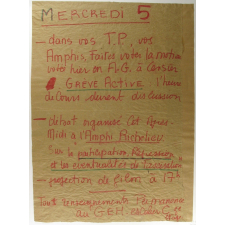 MERCREDI 5
— dans vos T.P, vos
Amphis, faites voter la motion
votée hier en A.G. à Censier
GRÈVE ACTIVE l'heure
de cours devient discussion
— débat organisé cet Après-
Midi à l'Amphi Richelieu
Sur la participation, Répression
et les éventualités de
— projection de films à 17h
Tout renseignements
au G.E.H. escalier C